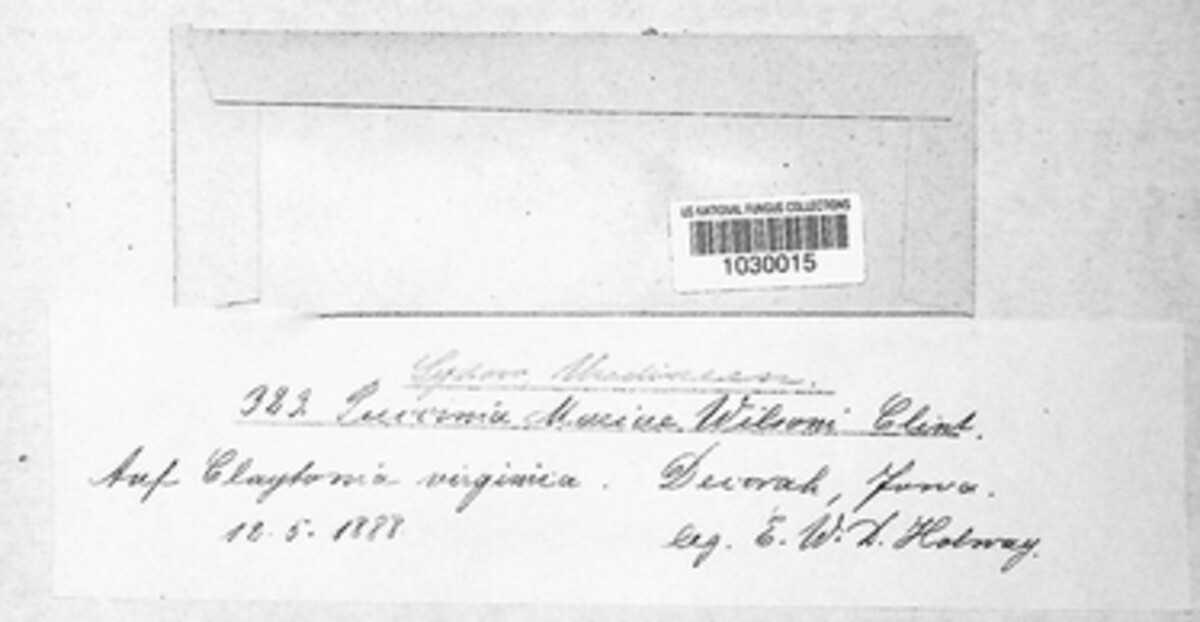 US NATIONAL FUNGUS COLLECTIONS
1030015
Sydow, Uredineen.
382 Puccinia Mariae Wilsoni Clint.
Auf Claytonia virginica. Decorah, Iowa.
12. 5. 1888 leg. E. W. D. Holway.